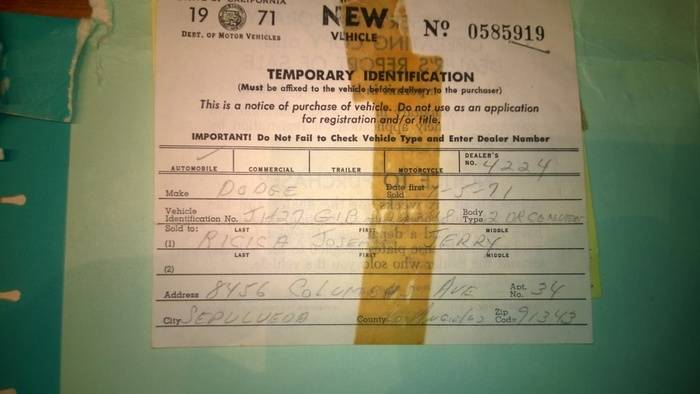 STATE OF CALIFORNIA
19 71 NEW Nº 0585919
DEPT. OF MOTOR VEHICLES VEHICLE
TEMPORARY IDENTIFICATION
(Must be affixed to the vehicle before delivery to the purchaser)
This is a notice of purchase of vehicle. Do not use as an application
for registration and/or title.
IMPORTANT! Do Not Fail to Check Vehicle Type and Enter Dealer Number
AUTOMOBILE COMMERCIAL TRAILER MOTORCYCLE DEALER'S NO. 4224
Make DODGE Date first Sold 5-71
Vehicle Identification No. Body Type 2 DR CONVERT
Sold to: LAST FIRST MIDDLE
(1) JERRY
LAST FIRST MIDDLE
(2)
Address 8456 COLUMBUS AVE Apt. No. 34
City SEPULVEDA County Los Angeles Zip Code 91343